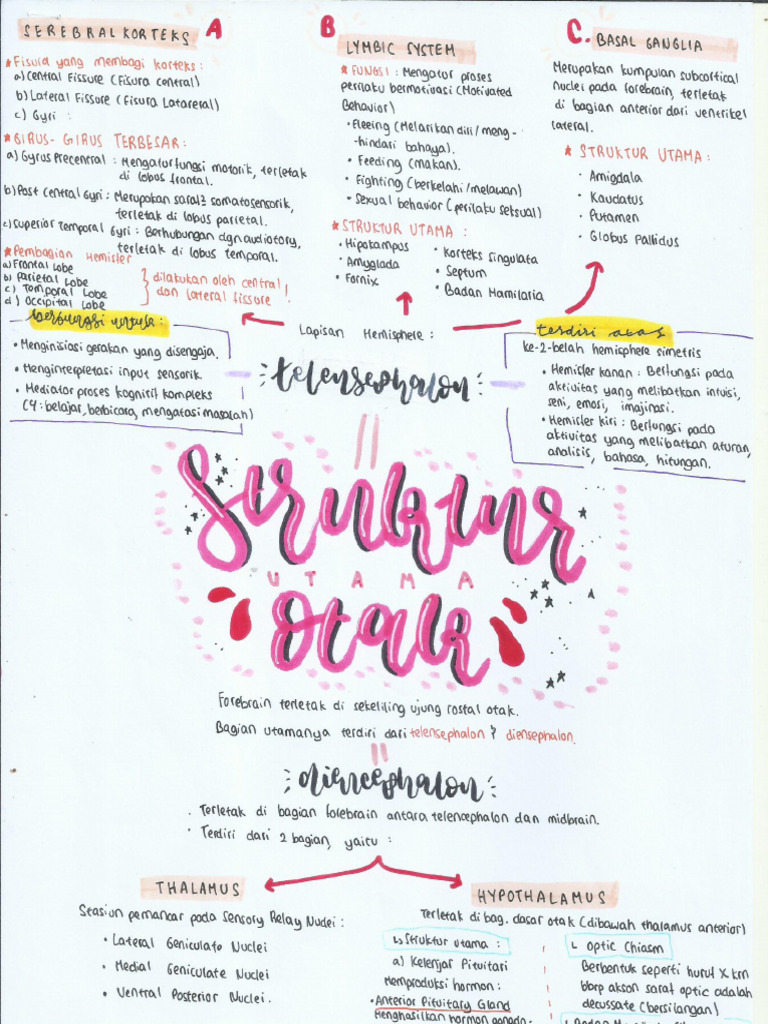 SEREBRAL KORTEKS A
* Fisura yang membagi korteks :
a) Central Fissure (Fisura central)
b) Lateral Fissure (Fisura Latareral)
c) Gyri :
* GIRUS-GIRUS TERBESAR :
a) Gyrus Precentral : Mengatur fungsi motorik, terletak
di lobus frontal.
b) Post Central Gyri : Merupakan saraf2 somatosensorik,
terletak di lobus parietal.
c) Superior Temporal Gyri : Berhubungan dgn auditory,
terletak di lobus temporal.
* Pembagian Hemisfer
a) Frontal Lobe
b) Parietal Lobe
c) Temporal Lobe
d) Occipital Lobe
dilakukan oleh central
dan lateral fissure
B
LYMBIC SYSTEM
* FUNGSI : Mengatur proses
perilaku bermotivasi (Motivated
Behavior)
• Fleeing (Melarikan diri / meng-
hindari bahaya).
• Feeding (makan).
• Fighting (berkelahi/melawan)
• Sexual behavior (perilaku seksual)
* STRUKTUR UTAMA :
• Hipokampus
• Amyglada
• Fornix
• Korteks Singulata
• Septum
• Badan Mamilaria
C. BASAL GANGLIA
Merupakan kumpulan subcortical
nuclei pada forebrain, terletak
di bagian anterior dari ventrikel
lateral.
* STRUKTUR UTAMA :
• Amigdala
• Kaudatus
• Putamen
• Globus Pallidus
Lapisan Hemisphere :
berfungsi untuk :
• Menginisiasi gerakan yang disengaja.
• Menginterpretasi input sensorik.
• Mediator proses kognitif kompleks
(Y : belajar, berbicara, mengatasi masalah)
telensephalon
terdiri atas
ke-2-belah hemisphere simetris
• Hemisfer kanan : Berfungsi pada
aktivitas yang melibatkan intuisi,
seni, emosi, imajinasi.
• Hemisfer kiri : Berfungsi pada
aktivitas yang melibatkan aturan,
analisis, bahasa, hitungan.
Struktur
UTAMA
Otak
Forebrain terletak di sekeliling ujung rostal otak.
Bagian utamanya terdiri dari telensephalon & diensephalon.
diencephalon
• Terletak di bagian forebrain antara telencephalon dan midbrain.
• Terdiri dari 2 bagian, yaitu :
THALAMUS
Stasiun pemancar pada Sensory Relay Nuclei :
• Lateral Geniculate Nuclei
• Medial Geniculate Nuclei
• Ventral Posterior Nuclei.
HYPOTHALAMUS
Terletak di bag. dasar otak (dibawah thalamus anterior)
↳ Struktur utama :
a) Kelenjar Pituitari
Memproduksi hormon :
• Anterior Pituitary Gland
Menghasilkan hormon gonado-
↳ Optic Chiasm
Berbentuk seperti huruf X krn
bbrp akson saraf optic adalah
decussate (bersilangan)